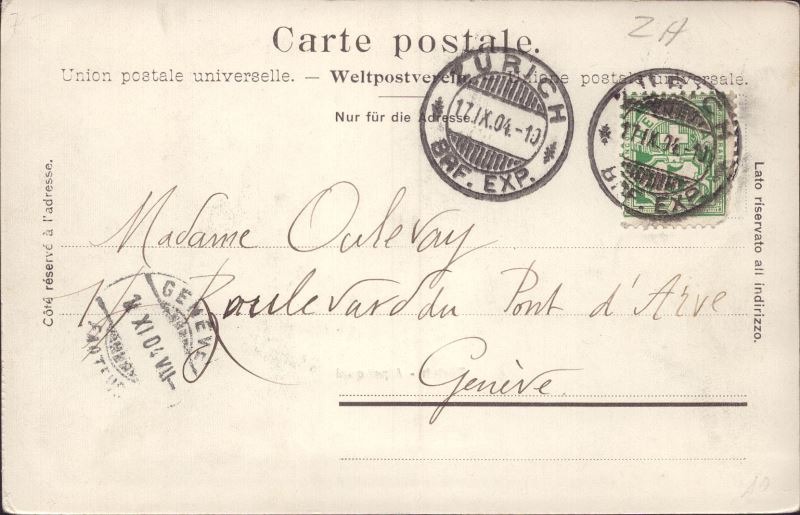 7
ZH
Carte postale.
Union postale universelle. — Weltpostverein. — Unione postale universale.
Nur für die Adresse.
ZURICH
17.IX.04.-10
BRF. EXP.
ZURICH
17.IX.04.-10
BRF. EXP.
Côté réservé à l'adresse.
Lato riservato all indirizzo.
Madame Oulevay
Boulevard du Pont d'Arve
Genève.
GENÈVE
XI 04 VII
FACTEURS